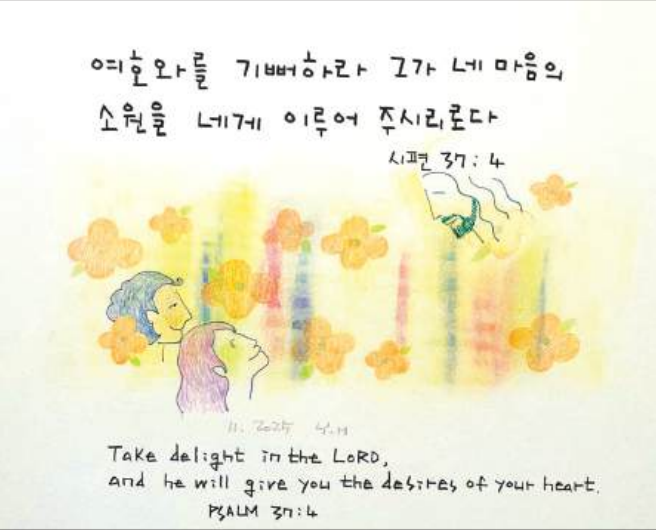 여호와를 기뻐하라 그가 네 마음의
소원을 네게 이루어 주시리로다
시편 37:4
11. 2025
Take delight in the LORD,
and he will give you the desires of your heart.
PSALM 37:4